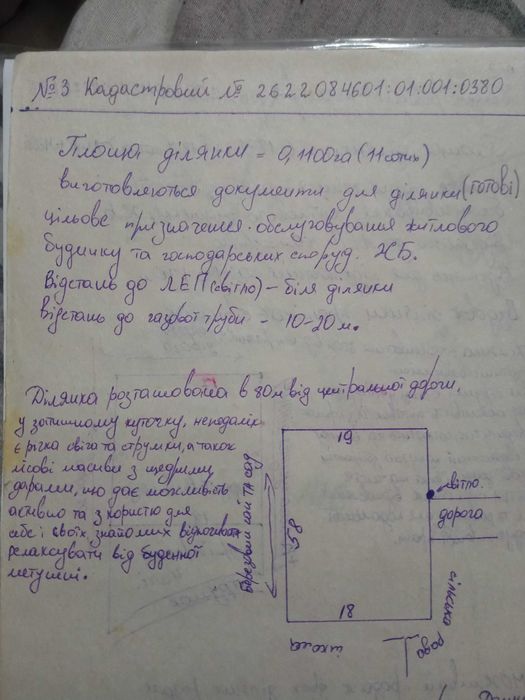 №3 Кадастровий № 2622084601:01:001:0380
Площа ділянки = 0,1100га (11 соток)
виготовляються документи для ділянки (готові)
цільове призначення - обслуговування житлового
будинку та господарських споруд. ЖБ.
Відстань до ЛЕП (світло) – біля ділянки
Відстань до газової труби - 10-20 м.
Ділянка розташована в 80м від центральної дороги,
у затишному куточку, неподалік
є річка свіча та струмки, а також
лісові масиви з щедрими
дарами, що дає можливість
активно та з користю для
себе і своїх знайомих відпочивати
релаксувати від буденної
метушні.
19
світло.
дорога
58
Березовий гай та сад
18
сільська рада
школа